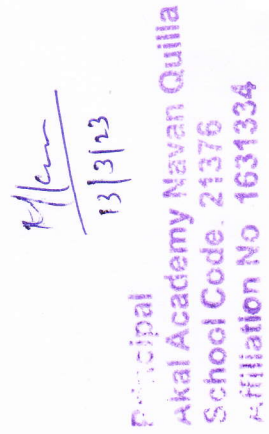 13/3/23
Principal
Akal Academy Navan Quilla
School Code. 21376
Affiliation No 1631334